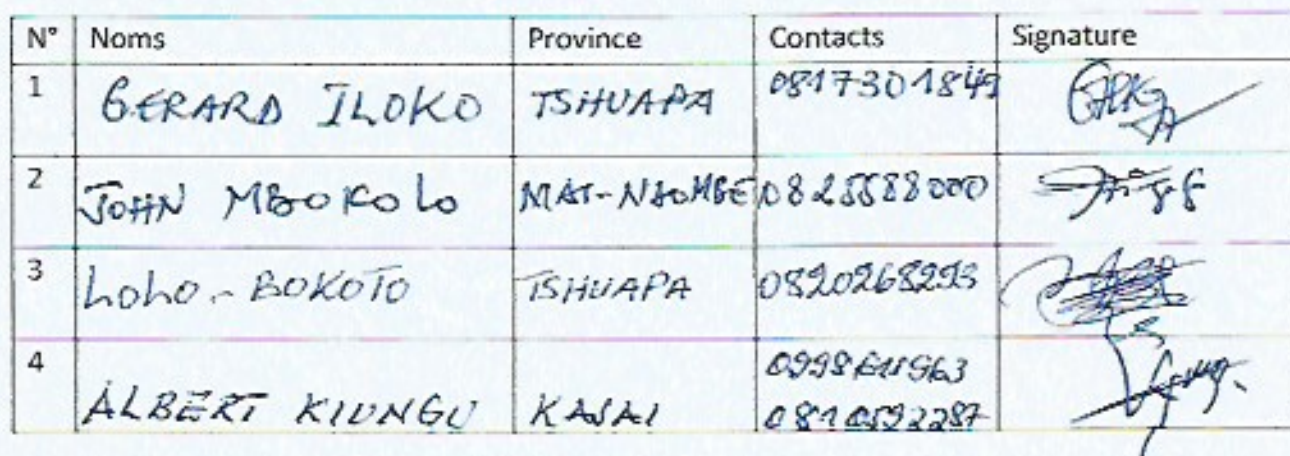 N° Noms Province Contacts Signature
1 GERARD ILOKO TSHUAPA 0817301849
2 JOHN MBOKOLO MAI-NDOMBE 0825588000
3 LOLO - BOKOTO TSHUAPA 0820268293
4 ALBERT KIUNGU KASAI
0810592287